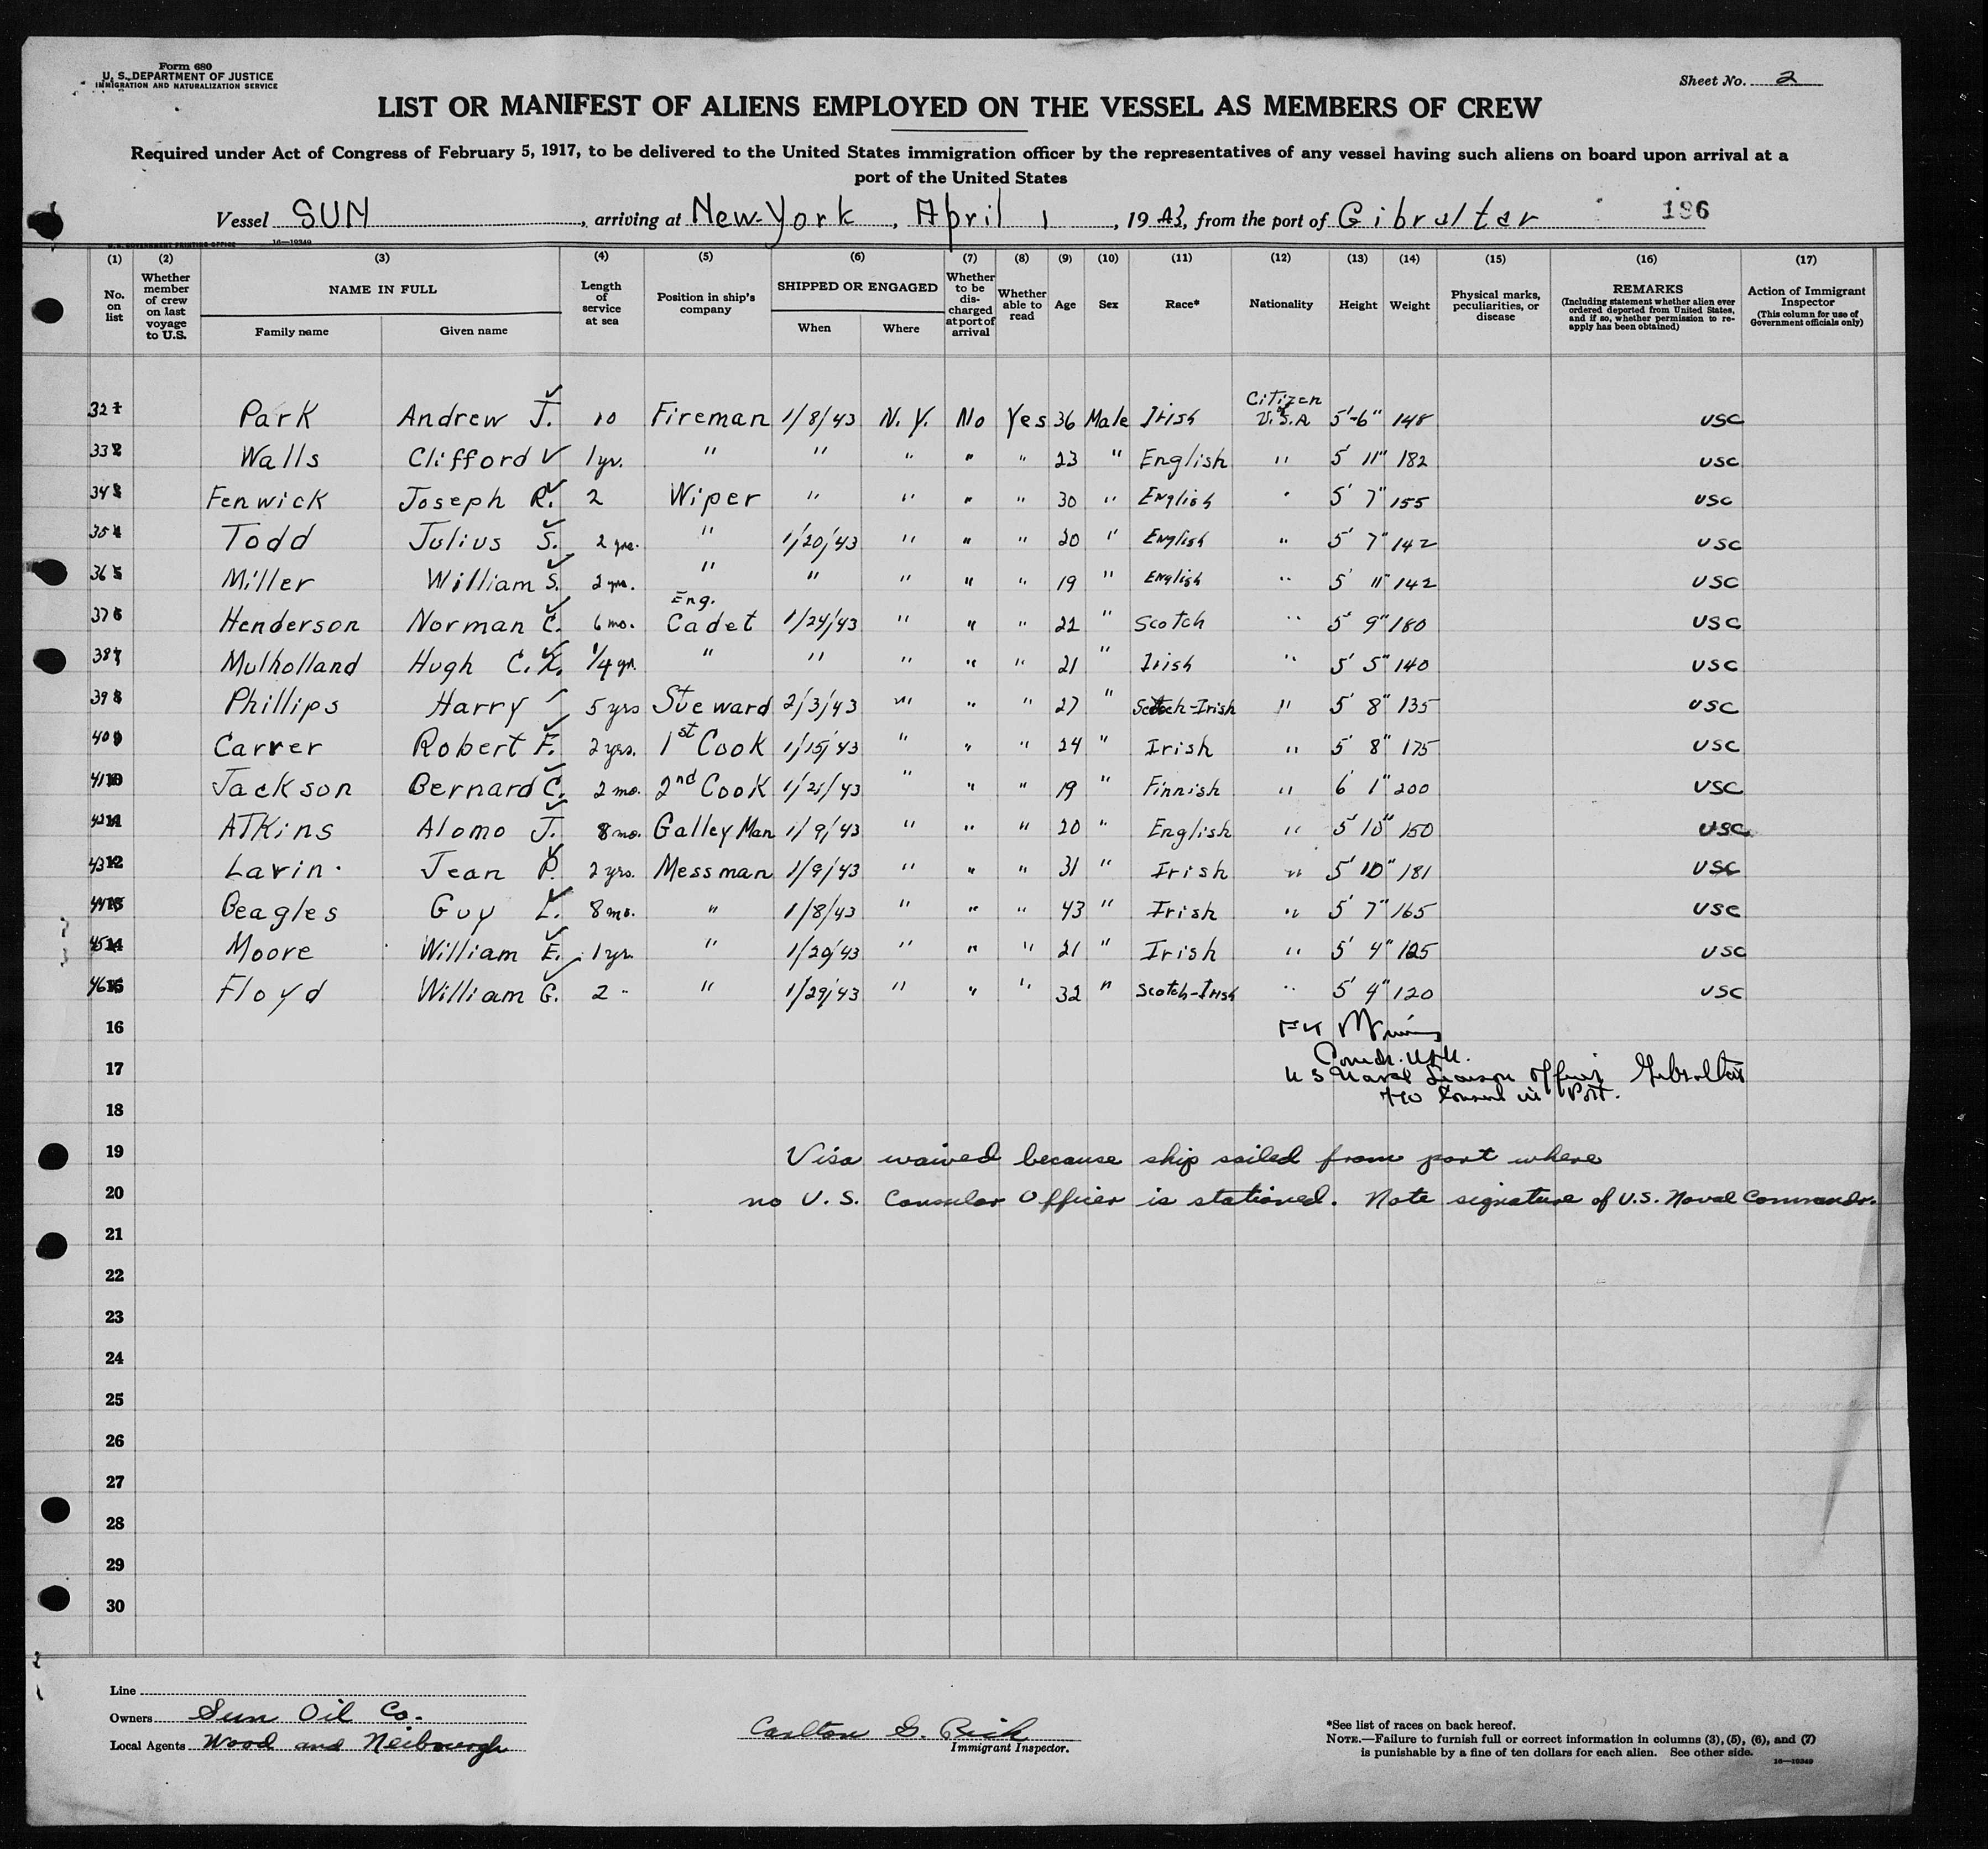 Form 680
U. S. DEPARTMENT OF JUSTICE
IMMIGRATION AND NATURALIZATION SERVICE
Sheet No. 2
LIST OR MANIFEST OF ALIENS EMPLOYED ON THE VESSEL AS MEMBERS OF CREW
Required under Act of Congress of February 5, 1917, to be delivered to the United States immigration officer by the representatives of any vessel having such aliens on board upon arrival at a
port of the United States
Vessel SUN, arriving at New-York, April 1, 1943, from the port of Gibraltar 186
U. S. GOVERNMENT PRINTING OFFICE 16—19349
(1) (2) (3) (4) (5) (6) (7) (8) (9) (10) (11) (12) (13) (14) (15) (16) (17)
No. on list
Whether member of crew on last voyage to U.S.
NAME IN FULL
Family name Given name
Length of service at sea
Position in ship's company
SHIPPED OR ENGAGED
When Where
Whether to be discharged at port of arrival
Whether able to read
Age
Sex
Race*
Nationality
Height
Weight
Physical marks, peculiarities, or disease
REMARKS
(Including statement whether alien ever ordered deported from United States, and if so, whether permission to re-apply has been obtained)
Action of Immigrant Inspector
(This column for use of Government officials only)
32 Park Andrew J. 10 Fireman 1/8/43 N. Y. No Yes 36 Male Irish Citizen U.S.A 5'-6" 148 USC
33 Walls Clifford 1 yr. " " " " " 23 " English " 5' 11" 182 USC
34 Fenwick Joseph R. 2 Wiper " " " " 30 " English " 5' 7" 155 USC
35 Todd Julius S. 2 yrs. " 1/20/43 " " " 20 " English " 5' 7" 142 USC
36 Miller William S. 2 yrs. " " " " " 19 " English " 5' 11" 142 USC
37 Henderson Norman C. 6 mo. Eng. Cadet 1/24/43 " " " 22 " Scotch " 5' 9" 180 USC
38 Mulholland Hugh C. K. 1/4 yr. " " " " " 21 " Irish " 5' 5" 140 USC
39 Phillips Harry 5 yrs Steward 2/3/43 " " " 27 " Scotch-Irish " 5' 8" 135 USC
40 Carver Robert F. 2 yrs. 1st Cook 1/15/43 " " " 24 " Irish " 5' 8" 175 USC
41 Jackson Bernard C. 2 mo. 2nd Cook 1/21/43 " " " 19 " Finnish " 6' 1" 200 USC
42 Atkins Alomo J. 8 mo. Galley Man 1/9/43 " " " 20 " English " 5' 10" 150 USC
43 Lavin Jean P. 2 yrs. Messman 1/9/43 " " " 31 " Irish " 5' 10" 181 USC
44 Beagles Guy L. 8 mo. " 1/8/43 " " " 43 " Irish " 5' 7" 165 USC
45 Moore William E. 1 yr. " 1/20/43 " " " 21 " Irish " 5' 4" 125 USC
46 Floyd William G. 2 " " 1/29/43 " " " 32 " Scotch-Irish " 5' 4" 120 USC
16
17 Comdr. USN.
U S Naval Liaison Officer Gibraltar
No Consul in Port.
18
19 Visa waived because ship sailed from port where
20 no U. S. Consular Officer is stationed. Note signature of U.S. Naval Commandr.
21
22
23
24
25
26
27
28
29
30
Line
Owners Sun Oil Co.
Local Agents Wood and Neibourgh
Carlton G. Rich
Immigrant Inspector.
*See list of races on back hereof.
NOTE.—Failure to furnish full or correct information in columns (3), (5), (6), and (7)
is punishable by a fine of ten dollars for each alien. See other side.
16—19349